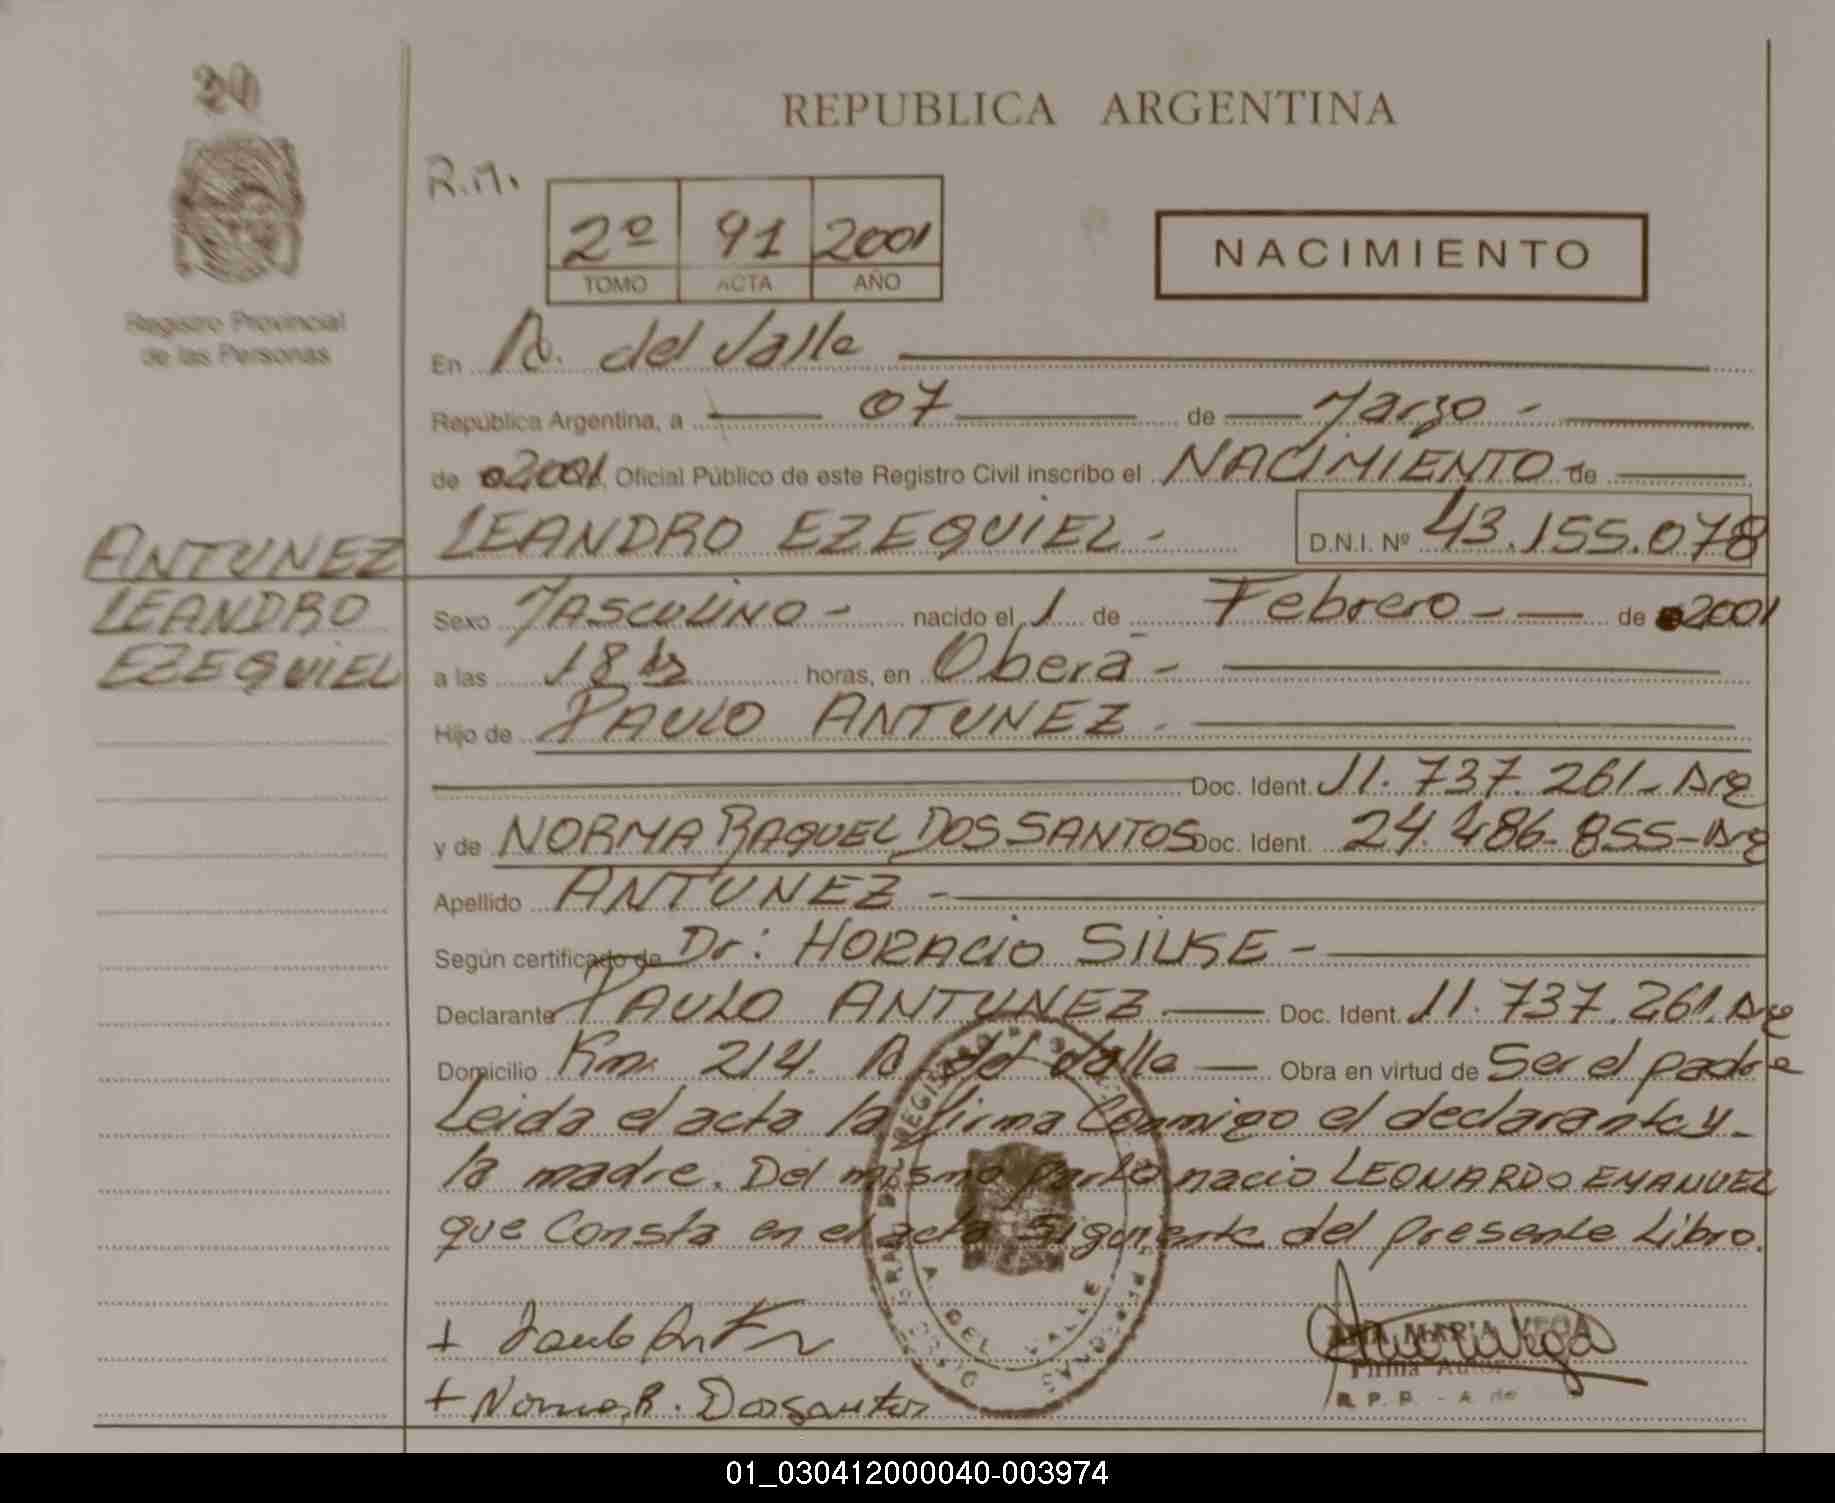 20
REPUBLICA ARGENTINA
R.M.
2º 91 2001
TOMO ACTA AÑO
NACIMIENTO
Registro Provincial
de las Personas
En A. del Valle
República Argentina, a 07 de Marzo -
de 2001, Oficial Público de este Registro Civil inscribo el NACIMIENTO de
ANTUNEZ
LEANDRO
EZEQUIEL
LEANDRO EZEQUIEL - D.N.I. Nº 43.155.078
Sexo MASCULINO - nacido el 1 de Febrero - de 2001
a las 18 hs horas, en Oberá -
Hijo de PAULO ANTUNEZ -
Doc. Ident. 11.737.261- Arg
y de NORMA RAQUEL DOS SANTOS Doc. Ident. 24.486.855-Arg
Apellido ANTUNEZ -
Según certificado de Dr: HORACIO SILKE -
Declarante PAULO ANTUNEZ Doc. Ident. 11.737.261. Arg
Domicilio Km. 214. A del Valle Obra en virtud de Ser el padre
Leida el acta la firma Conmigo el declarante y-
la madre. Del mismo parto nacio LEONARDO EMANUEL
que Consta en el acta siguiente del presente Libro.
A. DEL VALLE
+ Paulo
+ Norma R. Dossantos
ANA MARIA VEGA
Firma
R. P. P. - A de
01_030412000040-003974